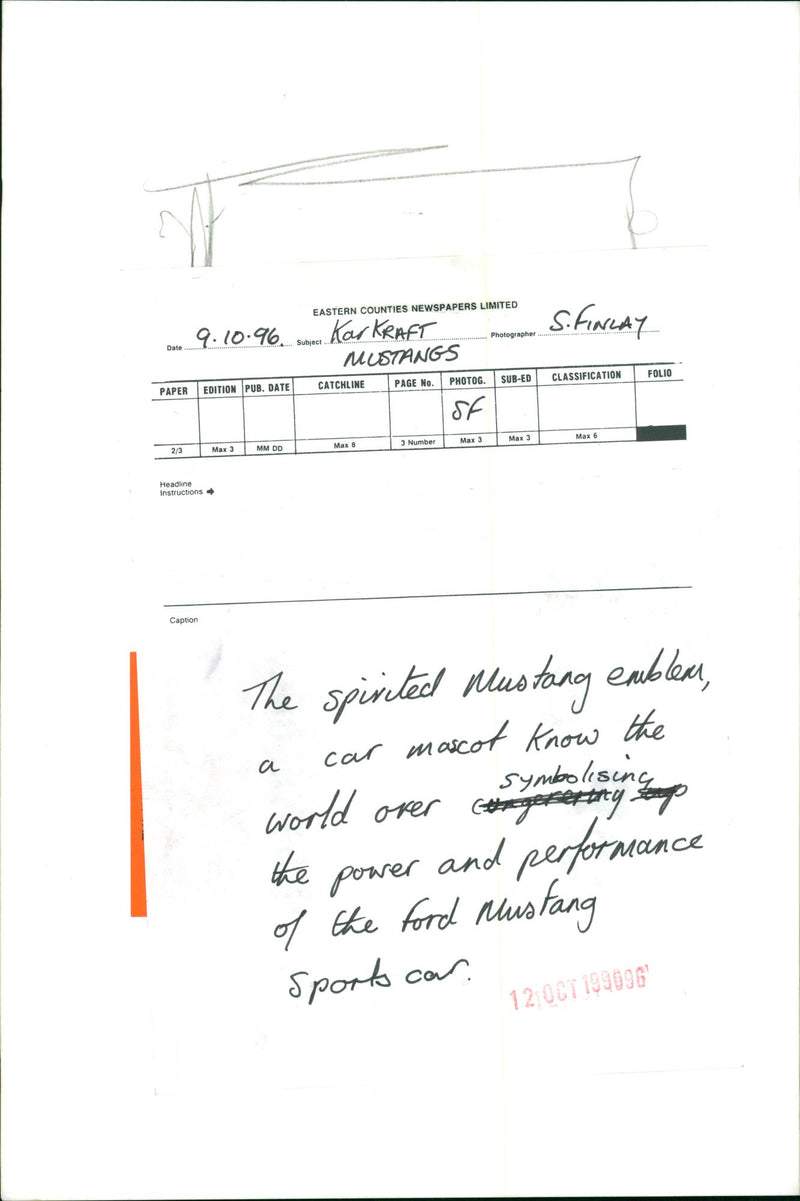 EASTERN COUNTIES NEWSPAPERS LIMITED
Date 9.10.96. Subject Kar KRAFT Photographer S. FINLAY
MUSTANGS
PAPER EDITION PUB. DATE CATCHLINE PAGE No. PHOTOG. SUB-ED CLASSIFICATION FOLIO
SF
2/3 Max 3 MM DD Max 8 3 Number Max 3 Max 3 Max 6
Headline
Instructions →
Caption
The spirited Mustang emblem,
a car mascot know the
symbolising
world over
the power and performance
of the ford Mustang
Sports car.
12 OCT 1996